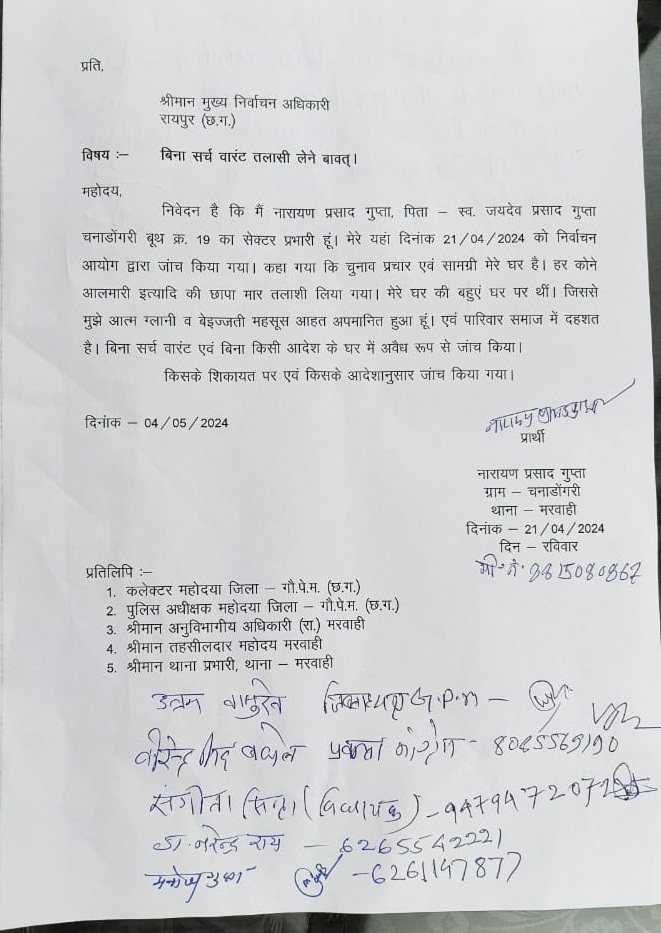 प्रति,
श्रीमान मुख्य निर्वाचन अधिकारी
रायपुर (छ.ग.)
विषय :– बिना सर्च वारंट तलासी लेने बावत्।
महोदय,
निवेदन है कि मैं नारायण प्रसाद गुप्ता, पिता – स्व. जयदेव प्रसाद गुप्ता
चनाडोंगरी बूथ क्र. 19 का सेक्टर प्रभारी हूं। मेरे यहां दिनांक 21/04/2024 को निर्वाचन
आयोग द्वारा जांच किया गया। कहा गया कि चुनाव प्रचार एवं सामग्री मेरे घर है। हर कोने
आलमारी इत्यादि की छापा मार तलाशी लिया गया। मेरे घर की बहुएं घर पर थीं। जिससे
मुझे आत्म ग्लानी व बेइज्जती महसूस आहत अपमानित हुआ हूं। एवं परिवार समाज में दहशत
है। बिना सर्च वारंट एवं बिना किसी आदेश के घर में अवैध रूप से जांच किया।
किसके शिकायत पर एवं किसके आदेशानुसार जांच किया गया।
दिनांक – 04/05/2024
प्रार्थी
नारायण प्रसाद गुप्ता
ग्राम – चनाडोंगरी
थाना – मरवाही
दिनांक – 21/04/2024
दिन – रविवार
मो. नं.
प्रतिलिपि :–
1. कलेक्टर महोदया जिला – गौ.पे.म. (छ.ग.)
2. पुलिस अधीक्षक महोदया जिला – गौ.पे.म. (छ.ग.)
3. श्रीमान अनुविभागीय अधिकारी (रा.) मरवाही
4. श्रीमान तहसीलदार महोदय मरवाही
5. श्रीमान थाना प्रभारी, थाना – मरवाही
उत्तम वासुदेव G.P.M –
वीरेन्द्र सिंह बघेल प्रवक्ता कांग्रेस -
संगीता सिन्हा (विधायक) -
डा. नरेन्द्र राय – 6265542221
मनोज गुप्ता – 6261147877